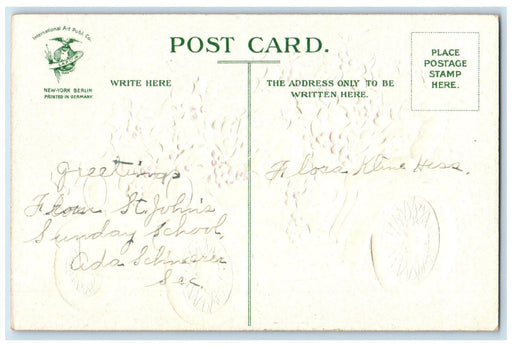 International Art Publ. Co.
NEW-YORK BERLIN
PRINTED IN GERMANY
POST CARD.
WRITE HERE
THE ADDRESS ONLY TO BE
WRITTEN HERE.
PLACE
POSTAGE
STAMP
HERE.
Greetings
From St. John's
Sunday School,
Ada Schnerer
Sec.
Flora Kline Hess.